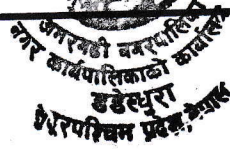 अमरगढी नगरपालिका
नगर कार्यपालिकाको कार्यालय
डडेल्धुरा
सुदूरपश्चिम प्रदेश, नेपाल